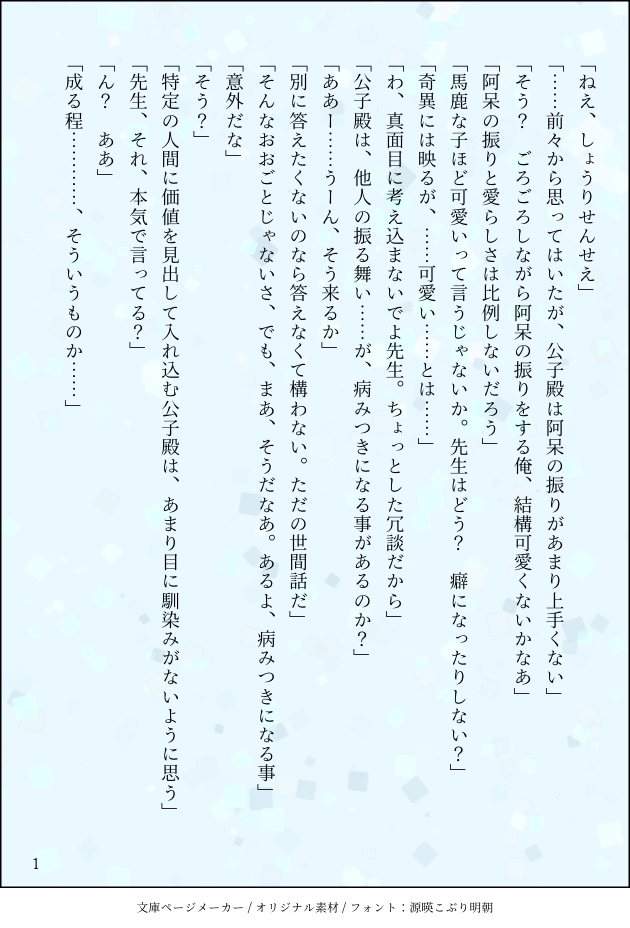 「ねえ、しょうりせんせえ」
「……前々から思ってはいたが、公子殿は阿呆の振りがあまり上手くない」
「そう？　ごろごろしながら阿呆の振りをする俺、結構可愛くないかなあ」
「阿呆の振りと愛らしさは比例しないだろう」
「馬鹿な子ほど可愛いって言うじゃないか。先生はどう？　癖になったりしない？」
「奇異には映るが、……可愛い……とは……」
「わ、真面目に考え込まないでよ先生。ちょっとした冗談だから」
「公子殿は、他人の振る舞い……が、病みつきになる事があるのか？」
「ああー……うーん、そう来るか」
「別に答えたくないのなら答えなくて構わない。ただの世間話だ」
「そんなおおごとじゃないさ、でも、まあ、そうだなあ。あるよ、病みつきになる事」
「意外だな」
「そう？」
「特定の人間に価値を見出して入れ込む公子殿は、あまり目に馴染みがないように思う」
「先生、それ、本気で言ってる？」
「ん？　ああ」
「成る程…………、そういうものか……」
1
文庫ページメーカー / オリジナル素材 / フォント：源暎こぶり明朝